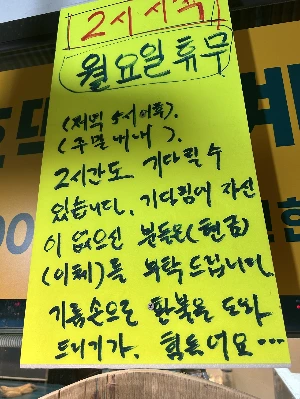 2시 시작
월요일 휴무
(저녁 5시 이후).
(주말 내내).
2시간도 기다릴 수
있습니다. 기다림에 자신
이 없으신 분들은 (현금)
(이체)를 부탁드립니다.
기름손으로 환불을 도와
드리기가. 힘들어요...